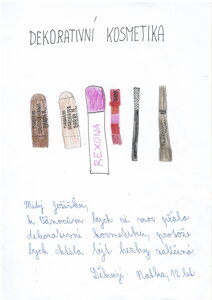 DEKORATIVNÍ KOSMETIKA
REXONA
Milý Ježíšku,
k Vánocům bych si moc přála
dekorativní kosmetiku, protože
bych chtěla být hezky nalíčená.
Děkuji Naťka, 12 let